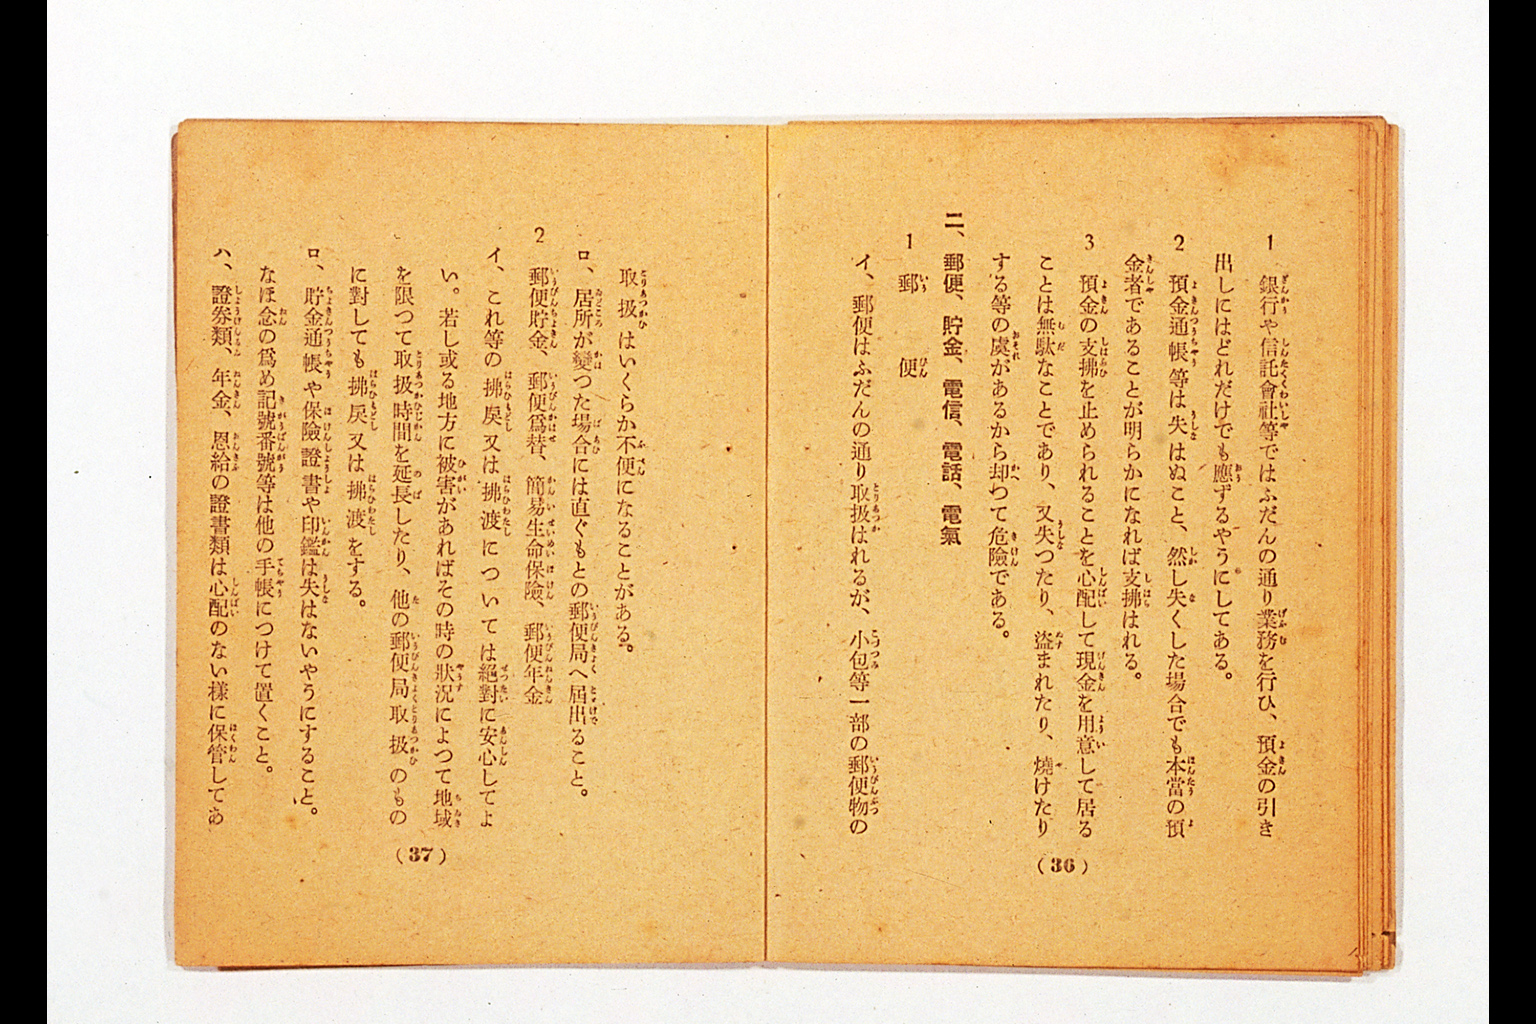 1 銀行や信託會社等ではふだんの通り業務を行ひ、預金の引き
出しにはどれだけでも應ずるやうにしてある。
2 預金通帳等は失はぬこと、然し失くした場合でも本當の預
金者であることが明らかになれば支拂はれる。
3 預金の支拂を止められることを心配して現金を用意して居る
ことは無駄なことであり、又失つたり、盗まれたり、燒けたり
する等の虞があるから却つて危險である。
二、郵便、貯金、電信、電話、電氣
1 郵便
イ、郵便はふだんの通り取扱はれるが、小包等一部の郵便物の
(36)
取扱はいくらか不便になることがある。
ロ、居所が變つた場合には直ぐもとの郵便局へ屆出ること。
2 郵便貯金、郵便爲替、簡易生命保險、郵便年金
イ、これ等の拂戻又は拂渡については絕對に安心してよ
い。若し或る地方に被害があればその時の狀況によつて地域
を限つて取扱時間を延長したり、他の郵便局取扱のもの
に對しても拂戻又は拂渡をする。
ロ、貯金通帳や保險證書や印鑑は失はないやうにすること。
なほ念の爲め記號番號等は他の手帳につけて置くこと。
ハ、證券類、年金、恩給の證書類は心配のない樣に保管してあ
(37)